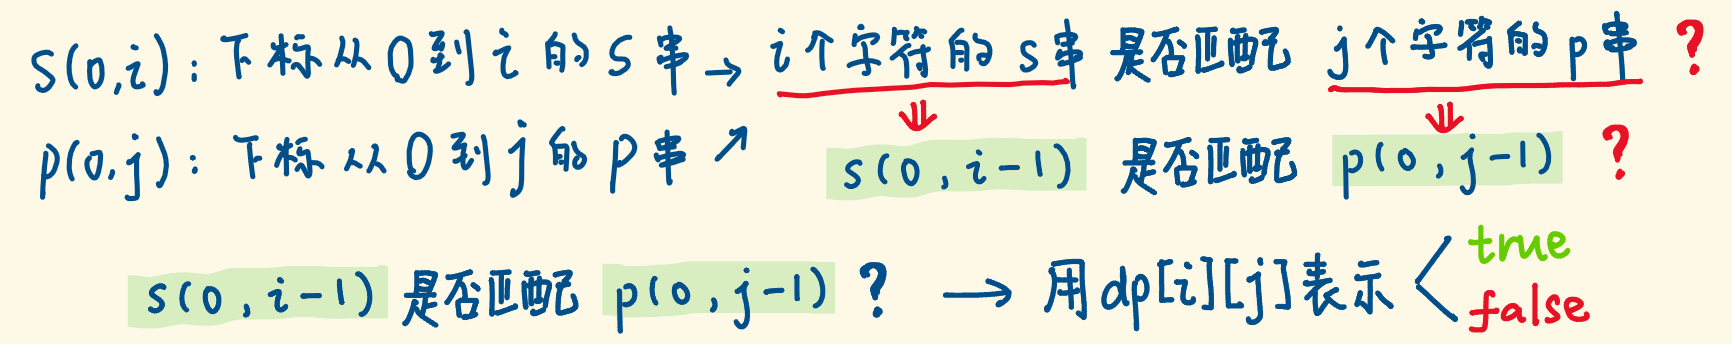 S(0,i): 下标从0到i的S串→ i个字符的s串 是否匹配 j个字符的p串 ?
p(0,j): 下标从0到j的p串↗ s(0,i-1) 是否匹配 p(0,j-1) ?
s(0,i-1) 是否匹配 p(0,j-1) ? → 用dp[i][j]表示 true
false